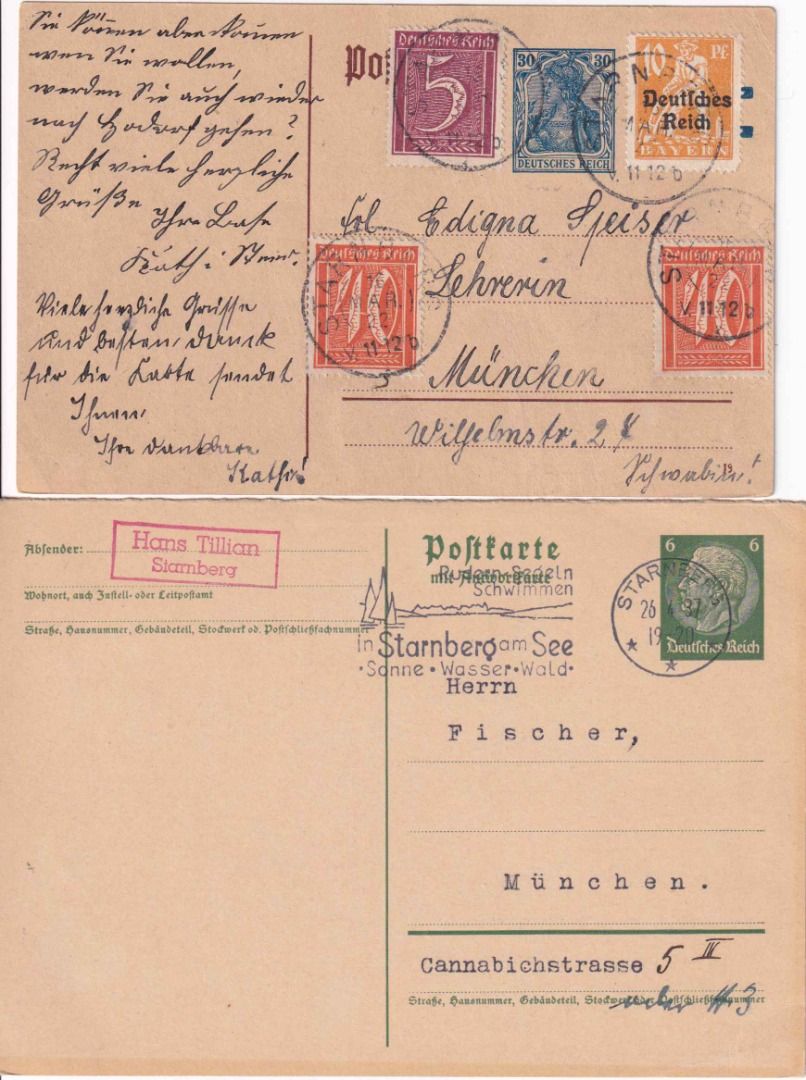 Sie können aber kommen
wen Sie wollen,
werden Sie auch wieder
nach gehen?
Recht viele herzliche
Grüße
Ihre Base
Käth.
Viele herzliche Grüsse
und besten danck
für die Karte sendet
Ihnen,
Ihre dankbare
Kathi
Deutsches Reich
5
30 30
DEUTSCHES REICH
10 Pf
Deutsches
Reich
BAYERN
STARNBERG
MAR
V. 11-12 b
Frl. Edigna Speiser
Lehrerin
Deutsches Reich
40
STARNBERG
16
MAR.
22
V. 11-12 b
Deutsches Reich
40
STARNBERG
V. 11-12 b
München
Wilhelmstr. 27
19
Absender:
Hans Tillian
Starnberg
Wohnort, auch Zustell- oder Leitpostamt
Straße, Hausnummer, Gebäudeteil, Stockwerk od. Postschließfachnummer
Postkarte
mit Antwortkarte
Rudern Segeln
Schwimmen
in Starnberg am See
·Sonne·Wasser·Wald·
STARNBERG
26.4.37
19-20
6 6
Deutsches Reich
Herrn
Fischer,
München.
Cannabichstrasse 5 IV
Straße, Hausnummer, Gebäudeteil, Stockwerk oder Postschließfachnummer
oder